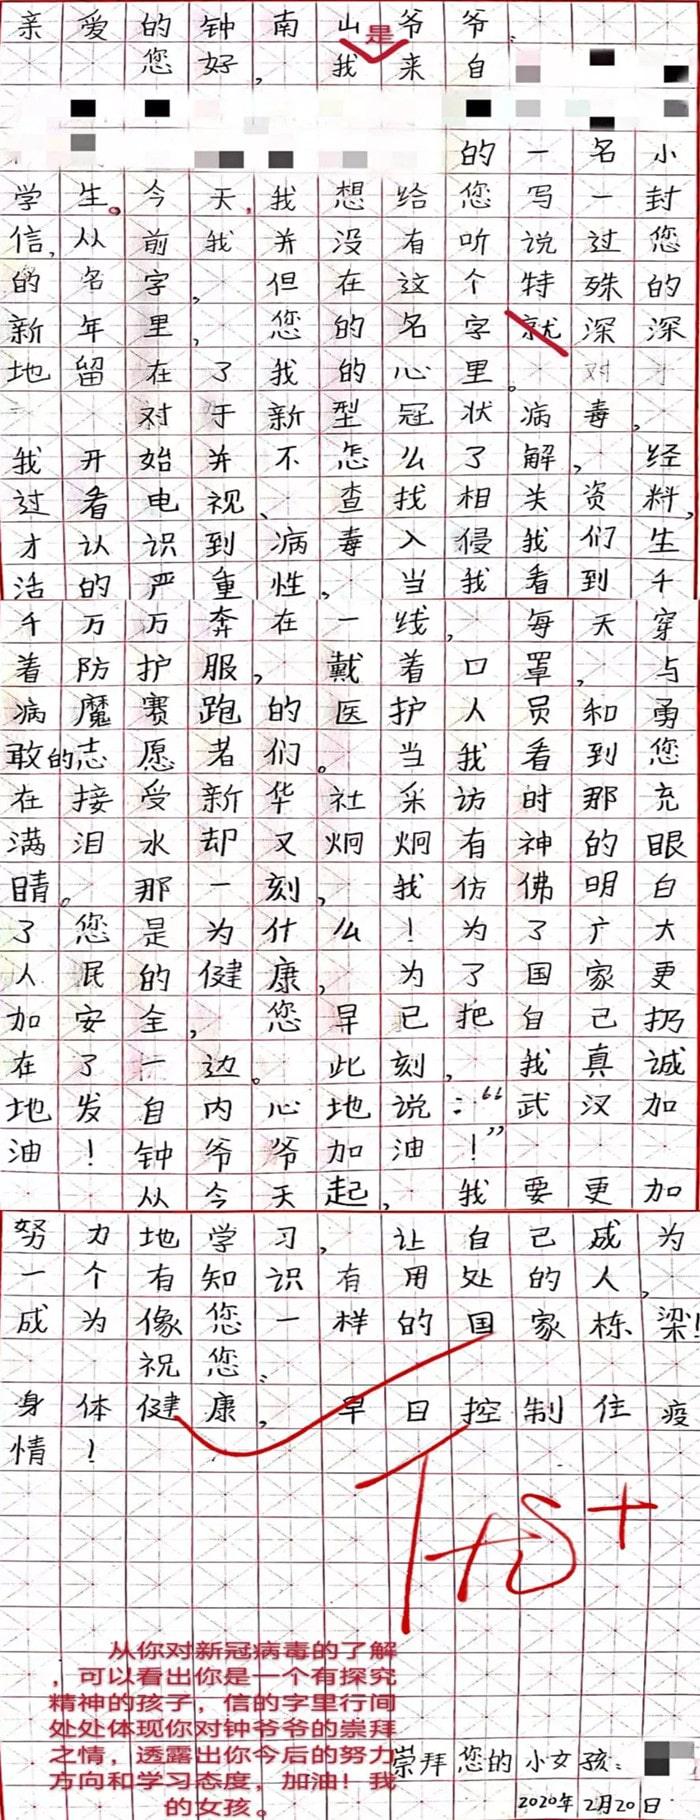 亲爱的钟南山爷爷:
是
您好,我来自
的一名小
学生。今天,我想给您写一封
信,从前我并没有听说过您
的名字,但在这个特殊的
新年里,您的名字就深深
地留在了我的心里。对于
对于新型冠状病毒,
我开始并不怎么了解,经
过看电视、查找相关资料,
才认识到病毒入侵我们生
活的严重性,当我看到千
千万万奔在一线,每天穿
着防护服,戴着口罩,与
病魔赛跑的医护人员和勇
敢的志愿者们。当我看到您
在接受新华社采访时那充
满泪水却又炯炯有神的眼
睛。那一刻,我仿佛明白
了您是为什么!为了广大
人民的健康,为了国家更
加安全,您早已把自己扔
在了一边。此刻,我真诚
地发自内心地说:“武汉加
油!钟爷爷加油!”
从今天起,我要更加
努力地学习,让自己成为
一个有知识有用处的人,
成为像您一样的国家栋梁!
祝您:
身体健康,早日控制住疫
情!
优+
从你对新冠病毒的了解
,可以看出你是一个有探究
精神的孩子,信的字里行间
处处体现你对钟爷爷的崇拜
之情,透露出你今后的努力
方向和学习态度,加油!我
的女孩。
崇拜您的小女孩:
2020年2月20日